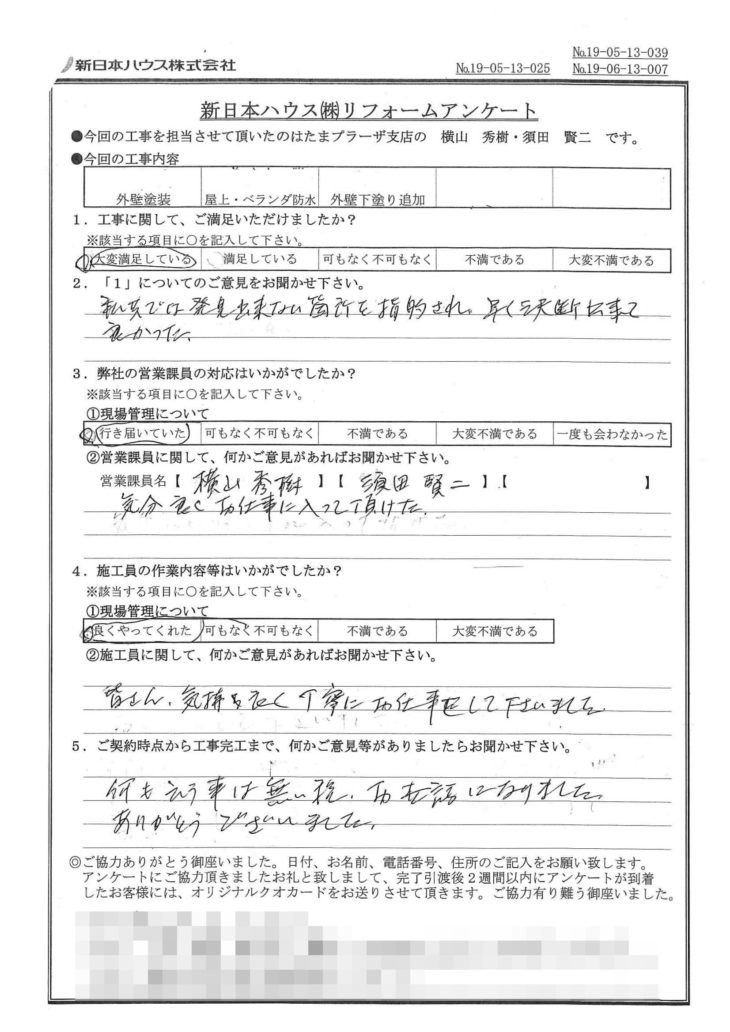 新日本ハウス株式会社
№19-05-13-025
№19-05-13-039
№19-06-13-007
新日本ハウス㈱リフォームアンケート
●今回の工事を担当させて頂いたのはたまプラーザ支店の 横山 秀樹・須田 賢二 です。
●今回の工事内容
外壁塗装 屋上・ベランダ防水 外壁下塗り追加
1．工事に関して、ご満足いただけましたか？
※該当する項目に○を記入して下さい。
大変満足している 満足している 可もなく不可もなく 不満である 大変不満である
2．「1」についてのご意見をお聞かせ下さい。
私共では発見出来ない箇所を指摘され、早く決断出来て
良かった。
3．弊社の営業課員の対応はいかがでしたか？
※該当する項目に○を記入して下さい。
①現場管理について
行き届いていた 可もなく不可もなく 不満である 大変不満である 一度も会わなかった
②営業課員に関して、何かご意見があればお聞かせ下さい。
営業課員名【 横山 秀樹 】【 須田 賢二 】【 】
気分良くお仕事に入って頂けた。
4．施工員の作業内容等はいかがでしたか？
※該当する項目に○を記入して下さい。
①現場管理について
良くやってくれた 可もなく不可もなく 不満である 大変不満である
②施工員に関して、何かご意見があればお聞かせ下さい。
皆さん、気持も良く丁寧にお仕事して下さいました。
5．ご契約時点から工事完工まで、何かご意見等がありましたらお聞かせ下さい。
何も言う事は無い程、お世話になりました。
ありがとうございました。
◎ご協力ありがとう御座いました。日付、お名前、電話番号、住所のご記入をお願い致します。
アンケートにご協力頂きましたお礼と致しまして、完了引渡後2週間以内にアンケートが到着
したお客様には、オリジナルクオカードをお送りさせて頂きます。ご協力有り難う御座いました。